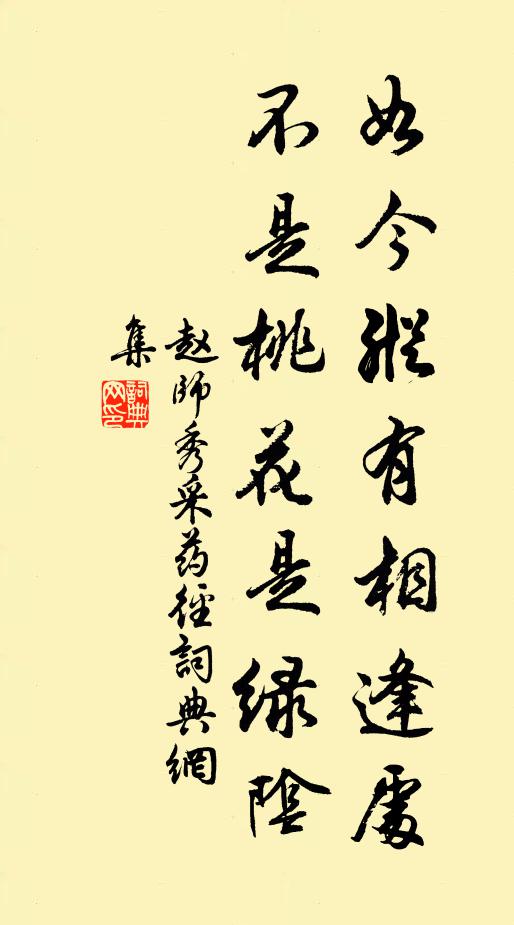 如今縱有相逢處
不是桃花是绿陰
赵師秀采药徑詞典網
集
詞典網印